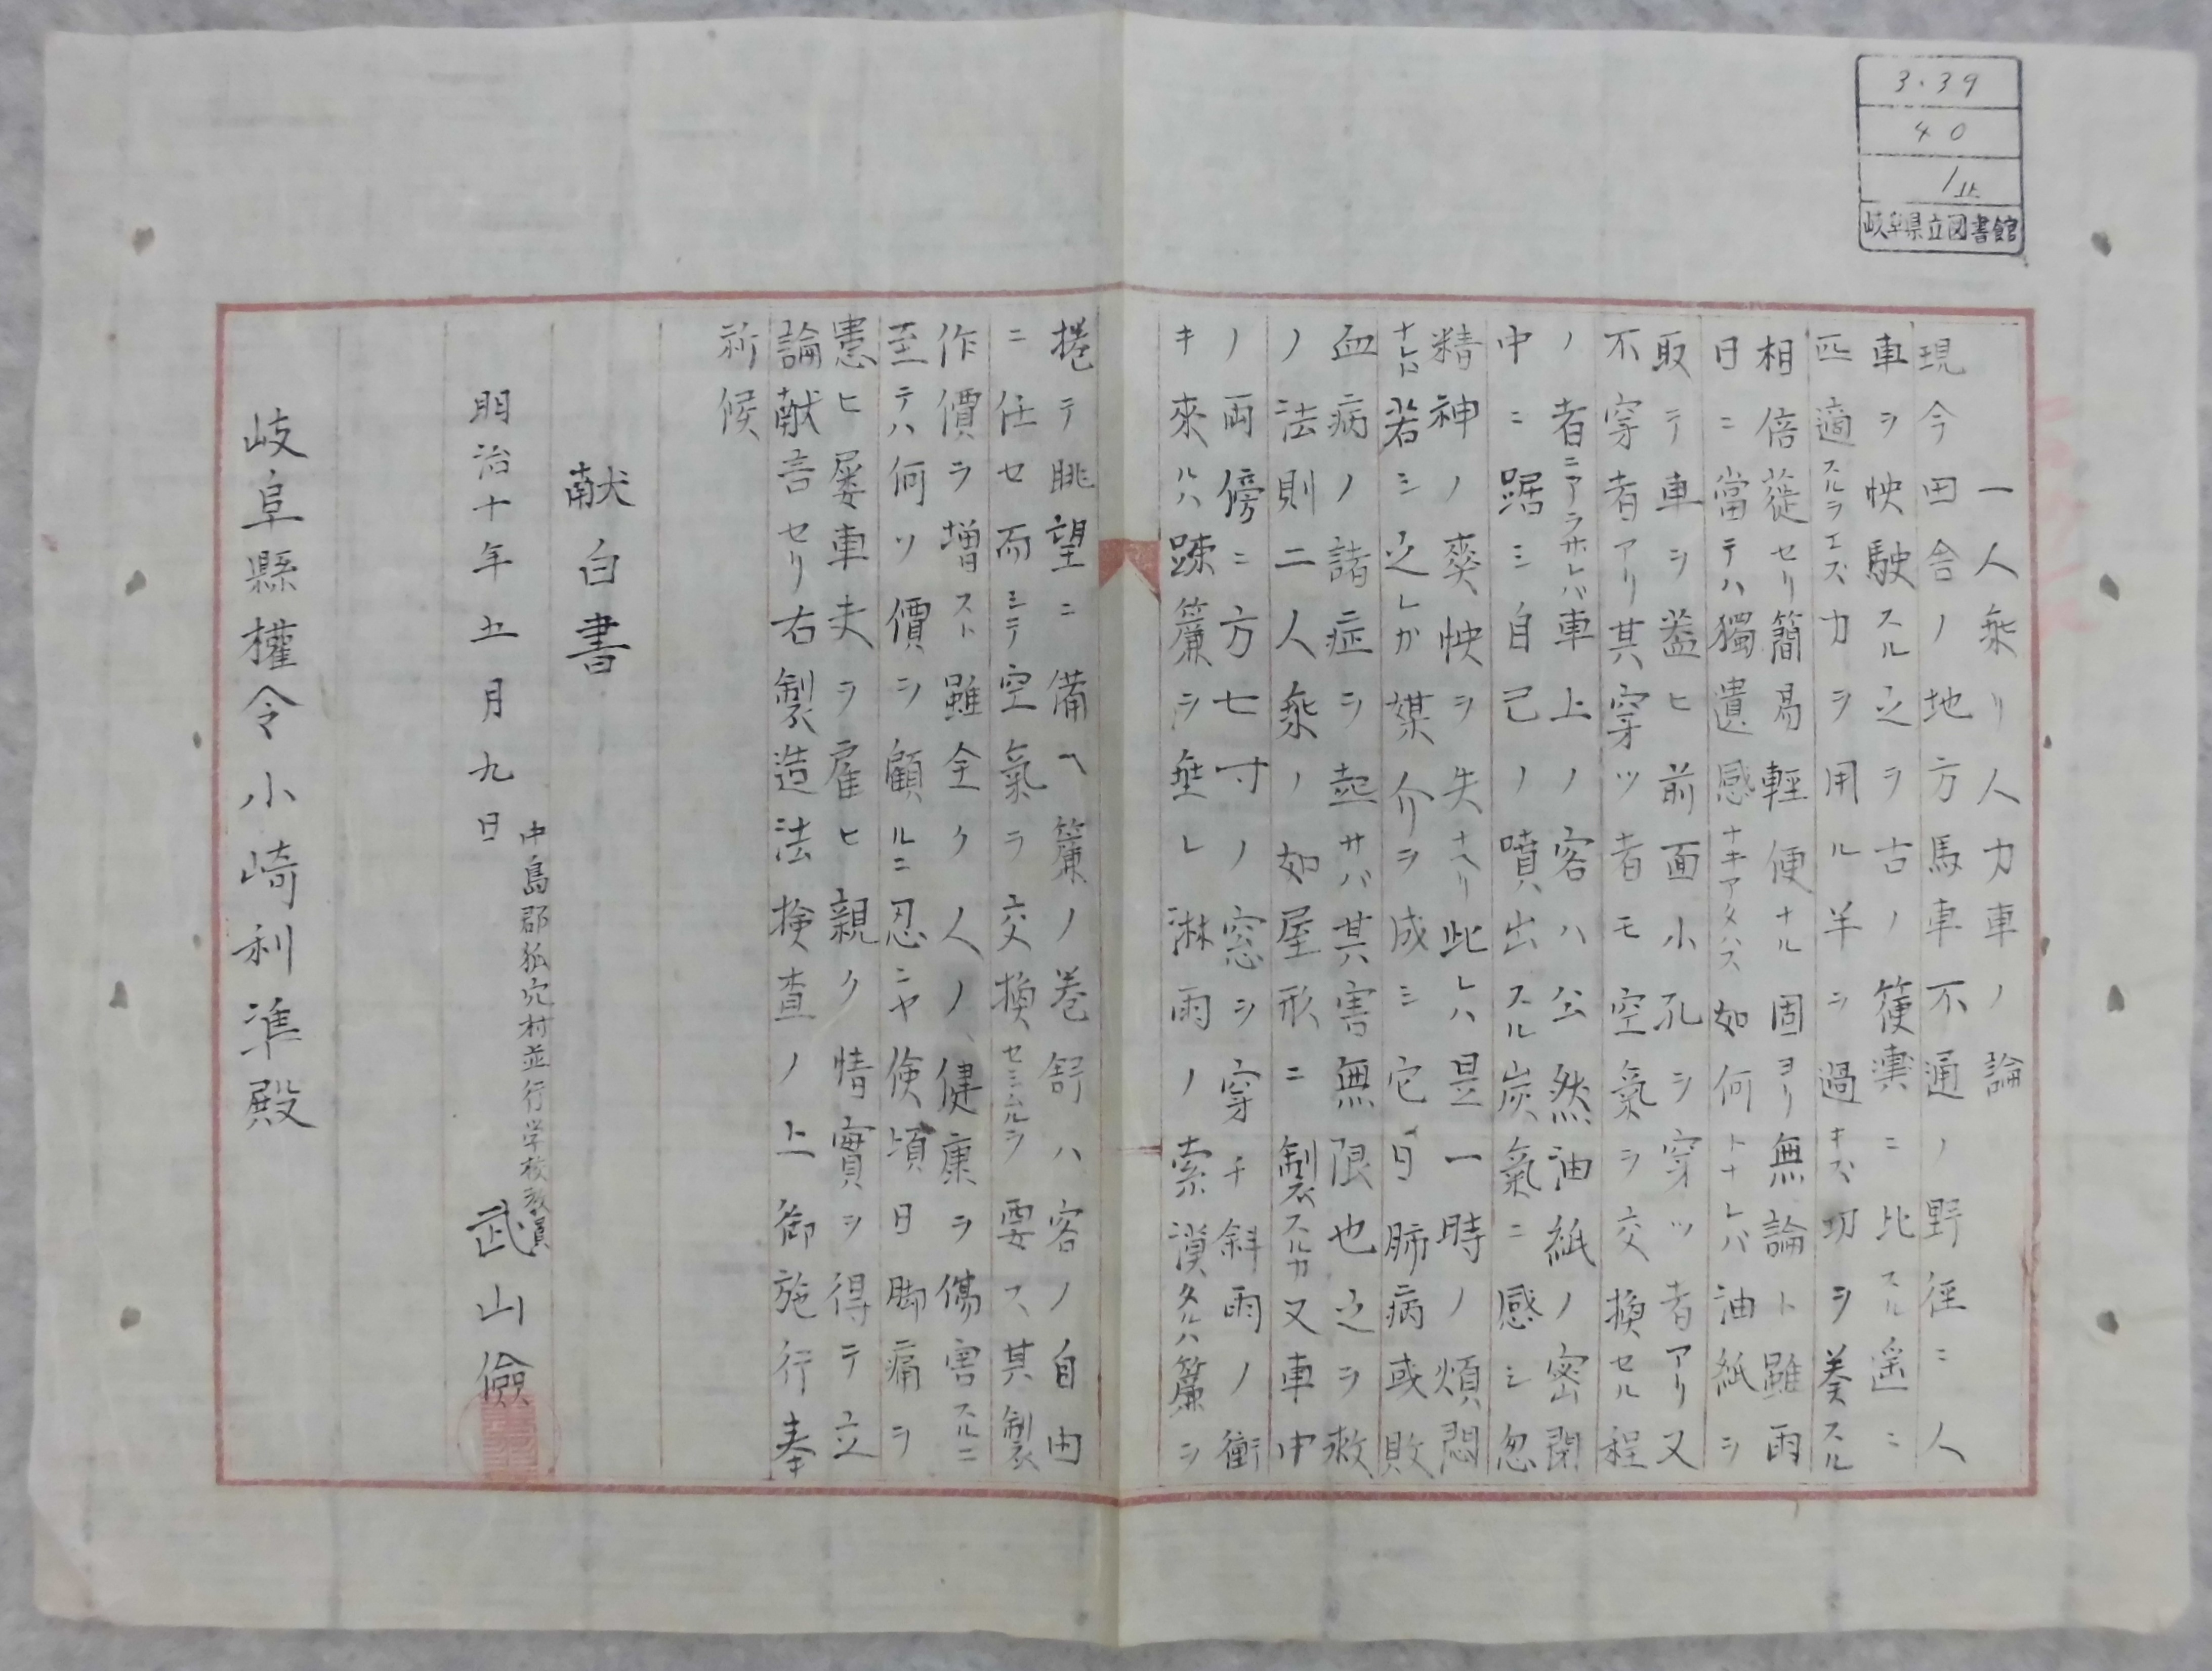 3.39
40
1止
岐阜県立図書館
一人乗リ人力車ノ論
現今田舎ノ地方馬車不通ノ野径ニ人
車ヲ怏駛スル之ヲ古ノ箯輿ニ比スル遥ニ
匹適スルヲエズ力ヲ用ル半ヲ過キズ功ヲ奏スル
相倍蓰セリ簡易軽便ナル固ヨリ無論ト雖雨
日ニ當テハ獨遺感ナキアタハス如何トナレバ油紙ヲ
取テ車ヲ蓋ヒ前面小孔ヲ穿ツ者アリ又
不穿者アリ其穿ツ者モ空氣ヲ交換セル程
ノ者ニアラサレバ車上ノ客ハ公然油紙ノ密閉
中ニ踞シ自己ノ噴出スル炭氣ニ感シ忽
精神ノ爽怏ヲ失ナヘリ此レハ是一時ノ煩悶
ナレトモ若シ之レガ媒介ヲ成シ它日肺病或敗
血病ノ諸症ヲ起サバ其害無限也之ヲ救
ノ法則二人乗ノ如屋形ニ製スルカ又車中
ノ両傍ニ方七寸ノ窓ヲ穿チ斜雨ノ衝
キ來ルハ踈簾ヲ垂レ淋雨ノ索漠タルハ簾ヲ
捲テ眺望ニ備ヘ簾ノ巻舒ハ客ノ自由
ニ任セ而シテ空氣ヲ交換セシムルヲ要ス其製
作價ヲ増スト雖全ク人ノ健康ヲ傷害スルニ
至テハ何ソ價ヲ顧ルニ忍ニヤ倹頃日脚痛ヲ
憲ヒ屡車夫ヲ雇ヒ親ク情實ヲ得テ立
論献言セリ右製造法検査ノ上御施行奉
祈候
献白書
中島郡狐穴村並行学校教員
明治十年五月九日 武山儉
岐阜縣權令小崎利準殿